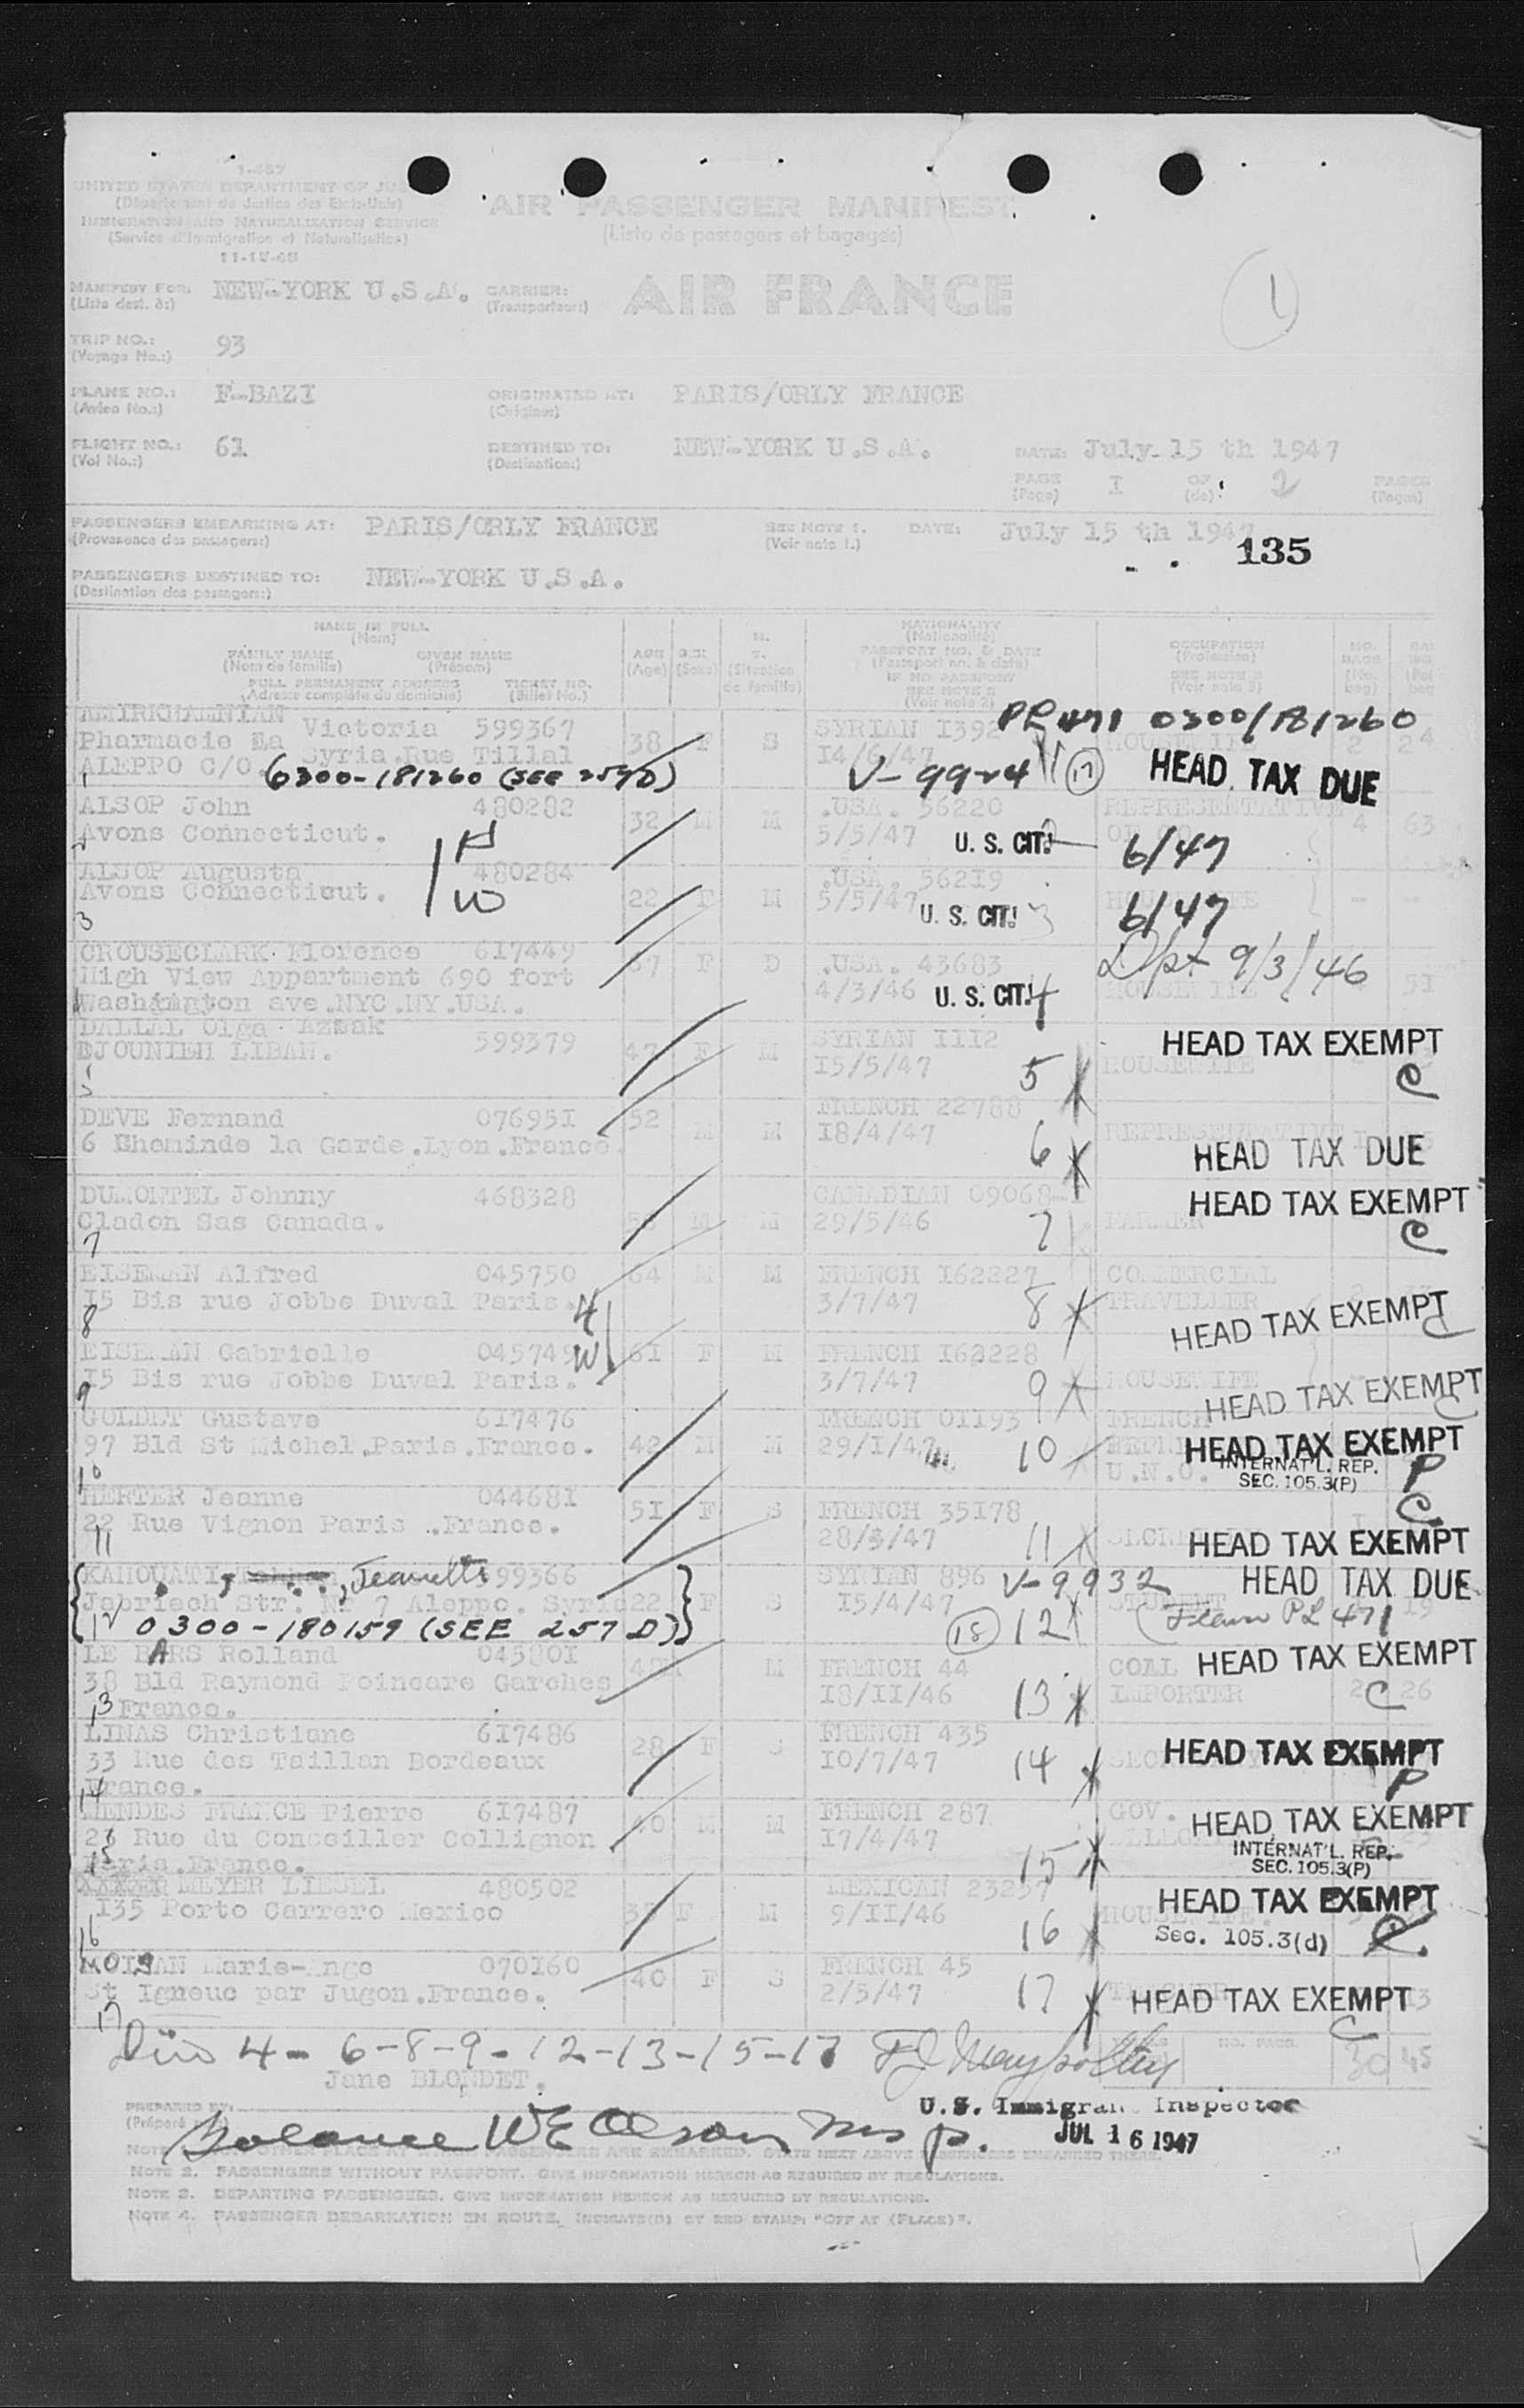 1-467
UNITED STATES DEPARTMENT OF JUS
(Département de Justice des Etats-Unis)
IMMIGRATION AND NATURALIZATION SERVICE
(Service d'Immigration et Naturalisation)
11-15-45
AIR PASSENGER MANIFEST
(Liste de passagers et bagages)
1
MANIFEST FOR: NEW-YORK U.S.A. CARRIER: AIR FRANCE
(Liste dest. à:) (Transporteur:)
TRIP NO.: 93
(Voyage No.:)
PLANE NO.: F-BAZI ORIGINATED AT: PARIS/ORLY FRANCE
(Avion No.:) (Origine:)
FLIGHT NO.: 61 DESTINED TO: NEW-YORK U.S.A. DATE: July 15 th 1947
(Vol No.:) (Destination:)
PAGE I OF 2 PAGES
(Page) (de) (Pages)
PASSENGERS EMBARKING AT: PARIS/ORLY FRANCE SEE NOTE 1. DATE: July 15 th 1947
(Provenance des passagers:) (Voir note 1.)
135
PASSENGERS DESTINED TO: NEW-YORK U.S.A.
(Destination des passagers:)
NAME IN FULL
(Nom)
FAMILY NAME GIVEN NAME
(Nom de famille) (Prénom)
FULL PERMANENT ADDRESS TICKET NO.
(Adresse complète du domicile) (Billet No.)
AGE SEX
(Age) (Sexe) (Situation de famille)
NATIONALITY
(Nationalité)
PASSPORT NO. & DATE
(Passeport no. & date)
IF NO PASSPORT
SEE NOTE 2
(Voir note 2)
OCCUPATION
(Profession)
SEE NOTE 3
(Voir note 3)
NO. BAGS
AMIRKHANNIAN Victoria 599367 SYRIAN 1392 PL 471 0300/181260
Pharmacie Syria Rue Tillal 38 F S 14/6/47 2 24
ALEPPO C/O 0300-181260 (SEE 257D) V-9924 17 HEAD TAX DUE
1
ALSOP John 480282 32 M M .USA. 56220 REPRESENTATIVE 4 63
2 Avons Connecticut. H 5/5/47 U. S. CIT. 2 6/47
ALSOP Augusta 480284 .USA. 56219
Avons Connecticut. W 22 F M 5/5/47 U. S. CIT. 3 6/47
3
CROUSECLARK Florence 617449 F D .USA. 43683 Dpt 9/3/46
High View Appartment 690 fort 4/3/46 U. S. CIT. 4 HOUSEWIFE 51
Washington ave.NYC.NY.USA.
DALLAL Olga Azmak 599379 47 F M SYRIAN 1112 HEAD TAX EXEMPT
DJOUNIEH LIBAN. 15/5/47 5 HOUSEWIFE C
5
DEVE Fernand 076951 52 M M FRENCH 22788 REPRESENTATIVE
6 Cheminde la Garde.Lyon.France. 18/4/47 6 HEAD TAX DUE
DUMONTEL Johnny 468328 M M CANADIAN 09068 HEAD TAX EXEMPT
Cladon Sas Canada. 29/5/46 7 FARMER C
7
EISEMAN Alfred 045750 64 M M FRENCH 162227 COMMERCIAL
15 Bis rue Jobbe Duval Paris. H 3/7/47 8 TRAVELLER
8 HEAD TAX EXEMPT C
EISEMAN Gabrielle 045749 W 61 F M FRENCH 162228
15 Bis rue Jobbe Duval Paris. 3/7/47 9 HOUSEWIFE
9 HEAD TAX EXEMPT C
GOLDET Gustave 617476 42 M M FRENCH 01193 FRENCH
97 Bld St Michel.Paris.France. 29/1/47 10 HEAD TAX EXEMPT
10 U.N.O. INTERNAT'L. REP. SEC. 105.3(P) P
HERTER Jeanne 044681 51 F S FRENCH 35178 C
22 Rue Vignon Paris .France. 28/3/47 11 HEAD TAX EXEMPT
11
KAHOUATI, Jeanette 599366 SYRIAN 896 V-9932 HEAD TAX DUE
Jebrieeh Str. Nr 7 Aleppo. Syria 22 F S 15/4/47 STUDENT 19
12 0300-180159 (SEE 257 D) 18 12 PL 471
LE BARS Rolland 045801 M FRENCH 44 COAL HEAD TAX EXEMPT
38 Bld Raymond Poincare Garches 18/11/46 13 IMPORTER C 26
13 France.
LINAS Christiane 617486 28 F S FRENCH 435 HEAD TAX EXEMPT
33 Rue des Taillan Bordeaux 10/7/47 14 P
14 France.
MENDES FRANCE Pierre 617487 40 M M FRENCH 287 GOV. HEAD TAX EXEMPT
Rue du Conseiller Collignon 17/4/47 15 INTERNAT'L. REP.
15 Paris.France. SEC. 105.3(P)
MEYER LIESEL 480502 F M MEXICAN 23257 HEAD TAX EXEMPT
135 Porto Carrero Mexico 9/11/46 16 HOUSEWIFE. Sec. 105.3(d) C.
16
MOISAN Marie-Ange 070160 40 F S FRENCH 45
St Igneuc par Jugon.France. 2/5/47 17 HEAD TAX EXEMPT
17 C
4- 6-8-9-12-13-15-17 30 45
Jane BLONDET.
PREPARED BY:
U.S. Immigrant Inspector
Balance WE Olson Insp. JUL 16 1947
NOTE 2. PASSENGERS WITHOUT PASSPORT. GIVE INFORMATION HEREON AS REQUIRED BY REGULATIONS.
NOTE 3. DEPARTING PASSENGERS. GIVE INFORMATION HEREON AS REQUIRED BY REGULATIONS.
NOTE 4. PASSENGER DEBARKATION EN ROUTE. INDICATE(D) BY RED STAMP: "OFF AT (PLACE)".